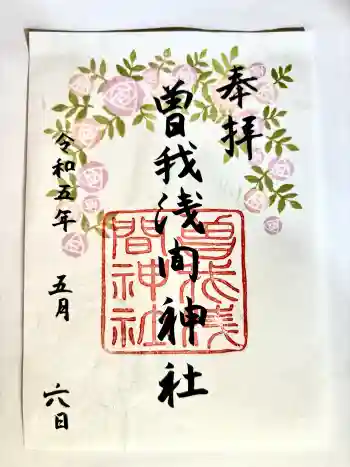 奉拝
曽我浅间神社
令和五年 五月 六日
曽我浅
間神社